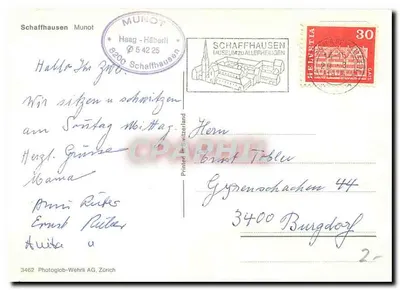 Schaffhausen Munot
MUNOT
Haag - Häberli
✆ 5 42 25
8200 Schaffhausen
SCHAFFHAUSEN
MUSEUM ZU ALLERHEILIGEN
HELVETIA
30
Hallo Ihr zwei
Wir sitzen u schwitzen
am Sonntag Mittag.
Herzl. Grüsse
Mama
Anni
Ernst
Anita u
Herrn
Ernst Tobler
Gysnenschachen 44
3400 Burgdorf
2.-
Printed in Switzerland
CPARTAIT
3462 Photoglob-Wehrli AG, Zürich